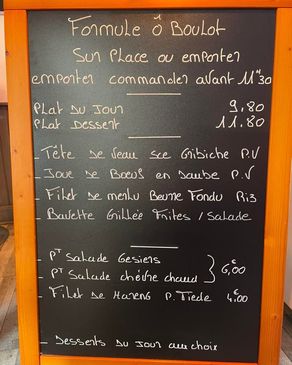 Formule ô Boulot
Sur Place ou emporter
emporter commander avant 11H30
Plat du Jour 9.80
Plat Dessert 11.80
_ Tête de veau sce Gribiche P.V
_ Joue de Boeuf en Daube P.V
_ Filet de merlu Beurre Fondu Riz
_ Bavette Grillée Frites / Salade
_ PT Salade Gesiers
_ PT Salade chèvre chaud } 6,00€
_ Filet de Hareng P. Tiede 4.00€
_ Desserts du Jour au choix